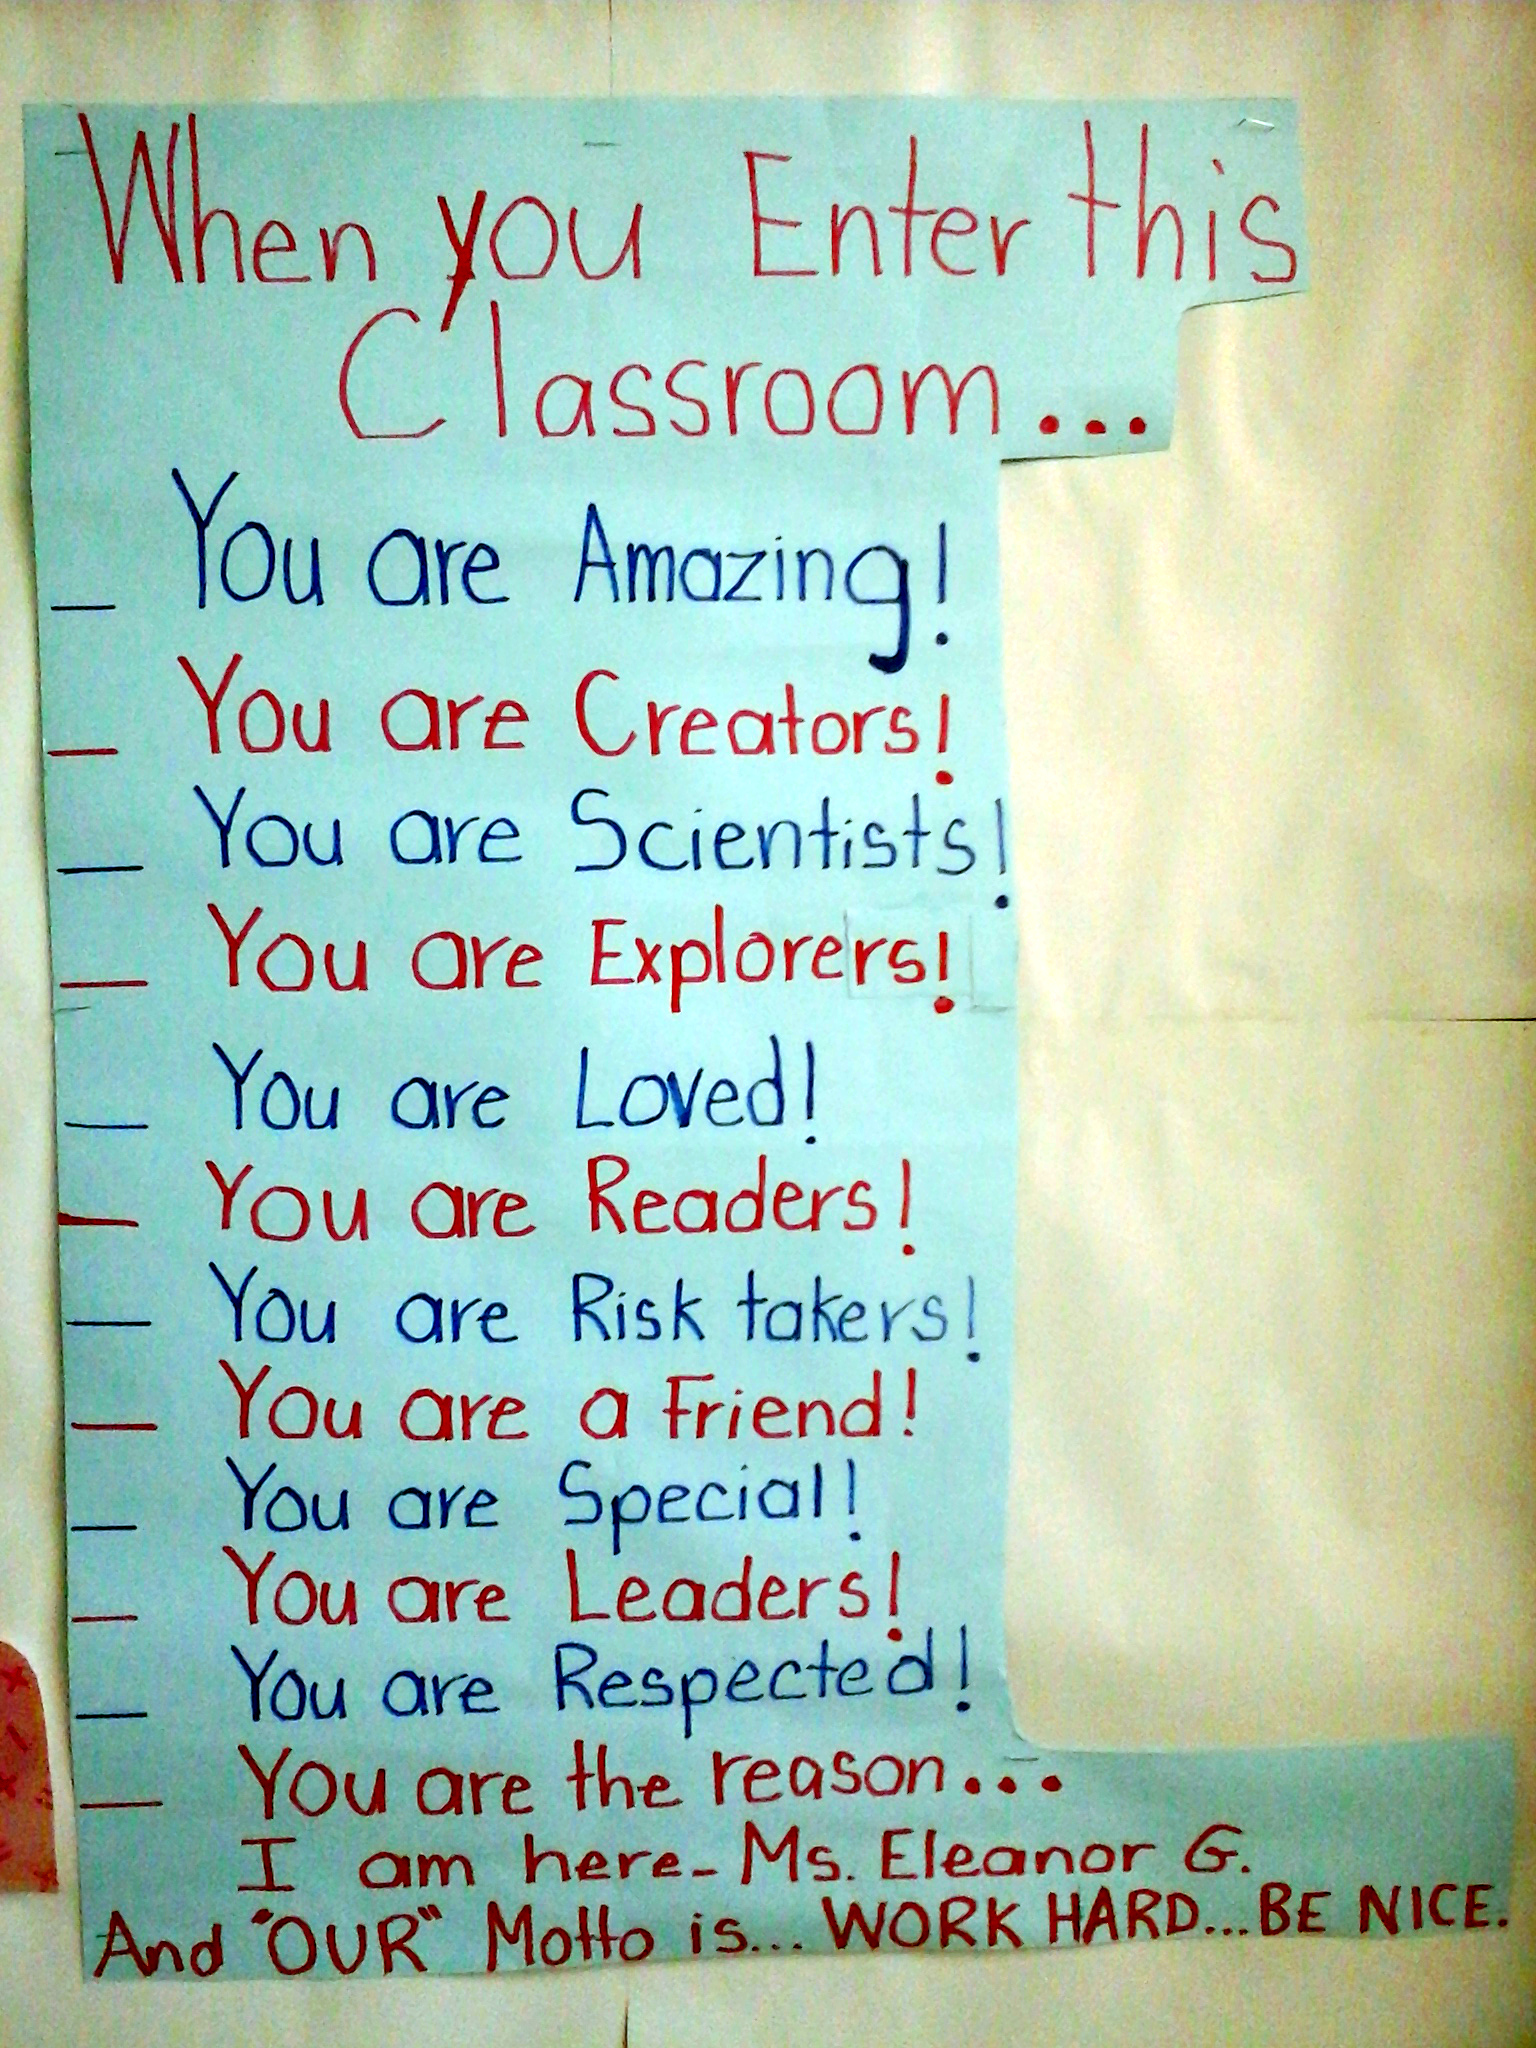 When you Enter this
Classroom...
_ You are Amazing!
_ You are Creators!
_ You are Scientists!
_ You are Explorers!
_ You are Loved!
_ You are Readers!
_ You are Risk takers!
_ You are a Friend!
_ You are Special!
_ You are Leaders!
_ You are Respected!
_ You are the reason...
I am here- Ms. Eleanor G.
And "OUR" Motto is... WORK HARD...BE NICE.